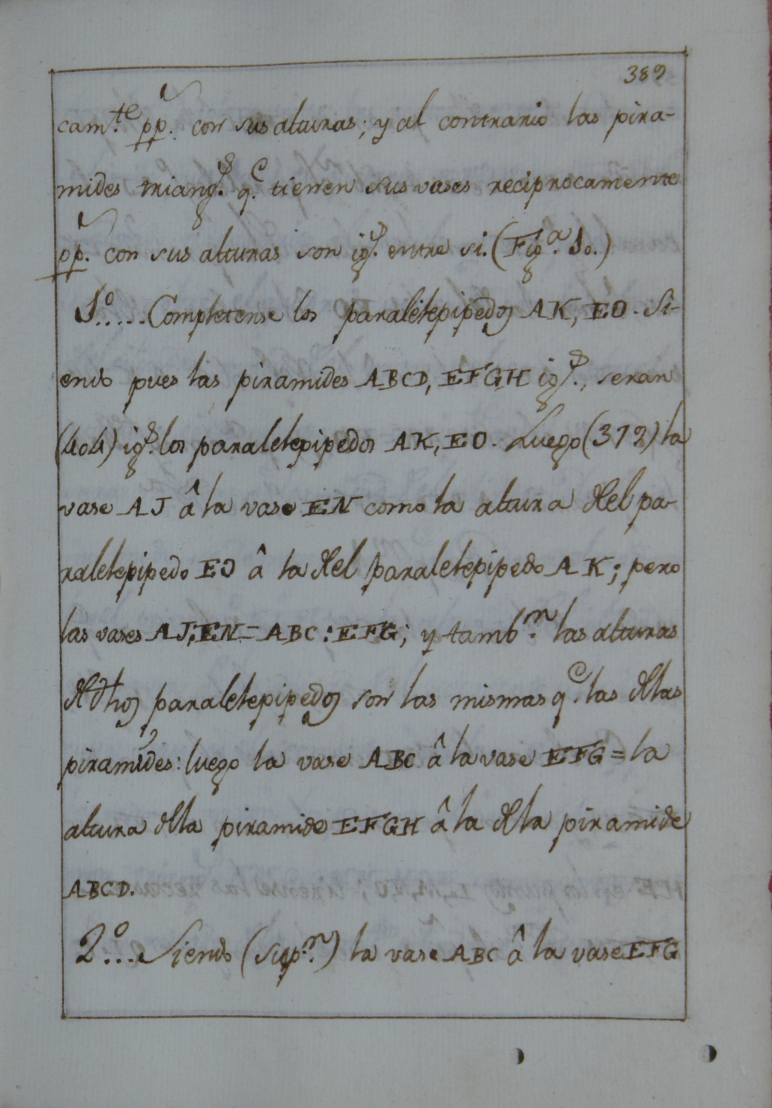 389
cam.te pp.s con sus alturas; y al contrario las pira-
mides triang.s q.e tienen sus vases reciprocamente
pp.s con sus alturas son ig.s entre si. (Fig.a 10.)
1.o.....Completense los paralelepipedos AK, EO. Si-
endo pues las piramides ABCD, EFGH ig.s, seran
(404) ig.s los paralelepipedos AK, EO. Luego (372) la
vase AJ â la vase EN como la altura del pa-
ralelepipedo EO â la del paralelepipedo AK; pero
las vases AJ:EN=ABC:EFG; y tamb.n las alturas
de dhos paralelepipedos son las mismas q.e las de las
piramides: luego la vase ABC â la vase EFG = la
altura de la piramide EFGH â la de la piramide
ABCD.
2.o...Siendo (sup.n) la vase ABC â la vase EFG